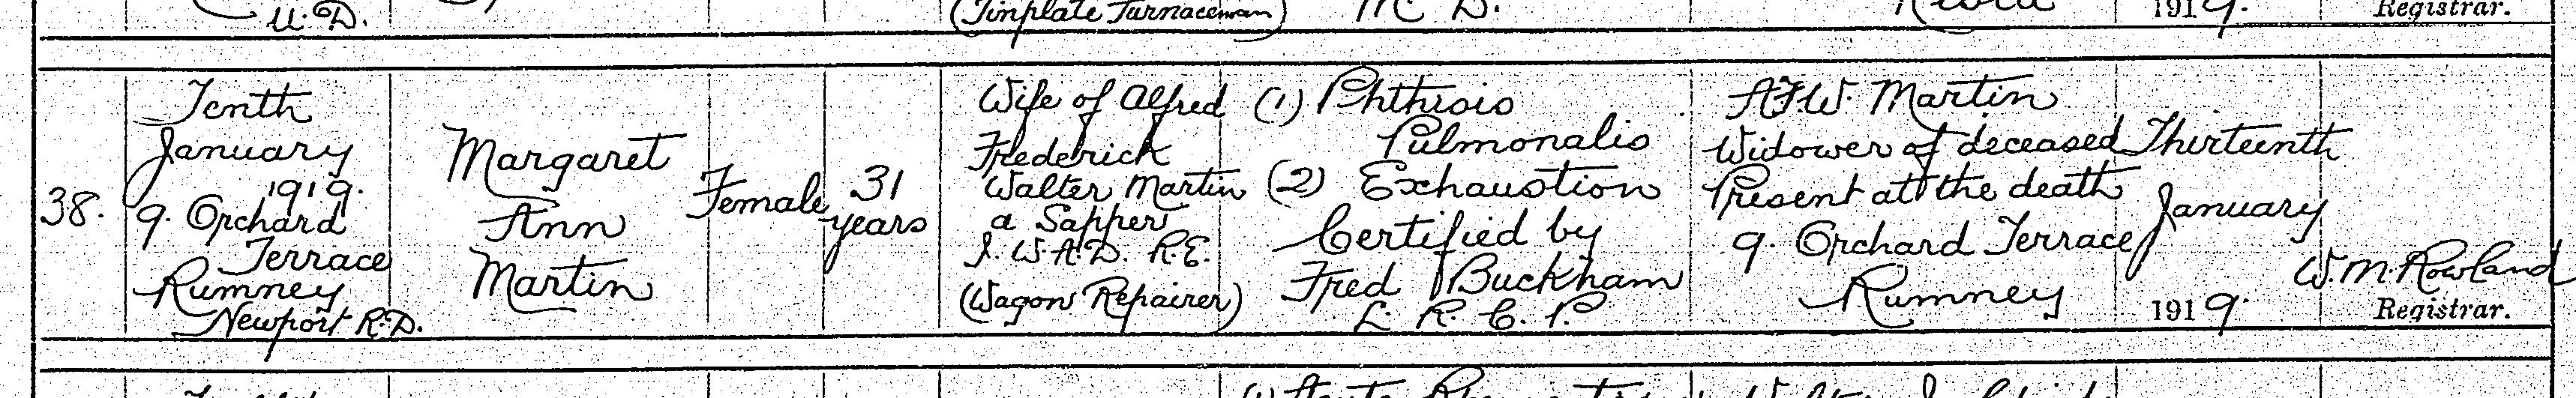 U.D.
(Tinplate Furnaceman)
M. D.
1919.
Registrar.
38.
Tenth
January
1919.
9. Orchard
Terrace
Rumney
Newport R.D.
Margaret
Ann
Martin
Female
31
years
Wife of Alfred
Frederick
Walter Martin
a Sapper
I. W.A.D. R.E.
(Wagon Repairer)
(1) Phthisis
Pulmonalis
(2) Exhaustion
Certified by
Fred Buckham
L. R. C. P.
A.F.W. Martin
Widower of deceased
Present at the death
9. Orchard Terrace
Rumney
Thirteenth
January
1919.
W.M. Rowland
Registrar.